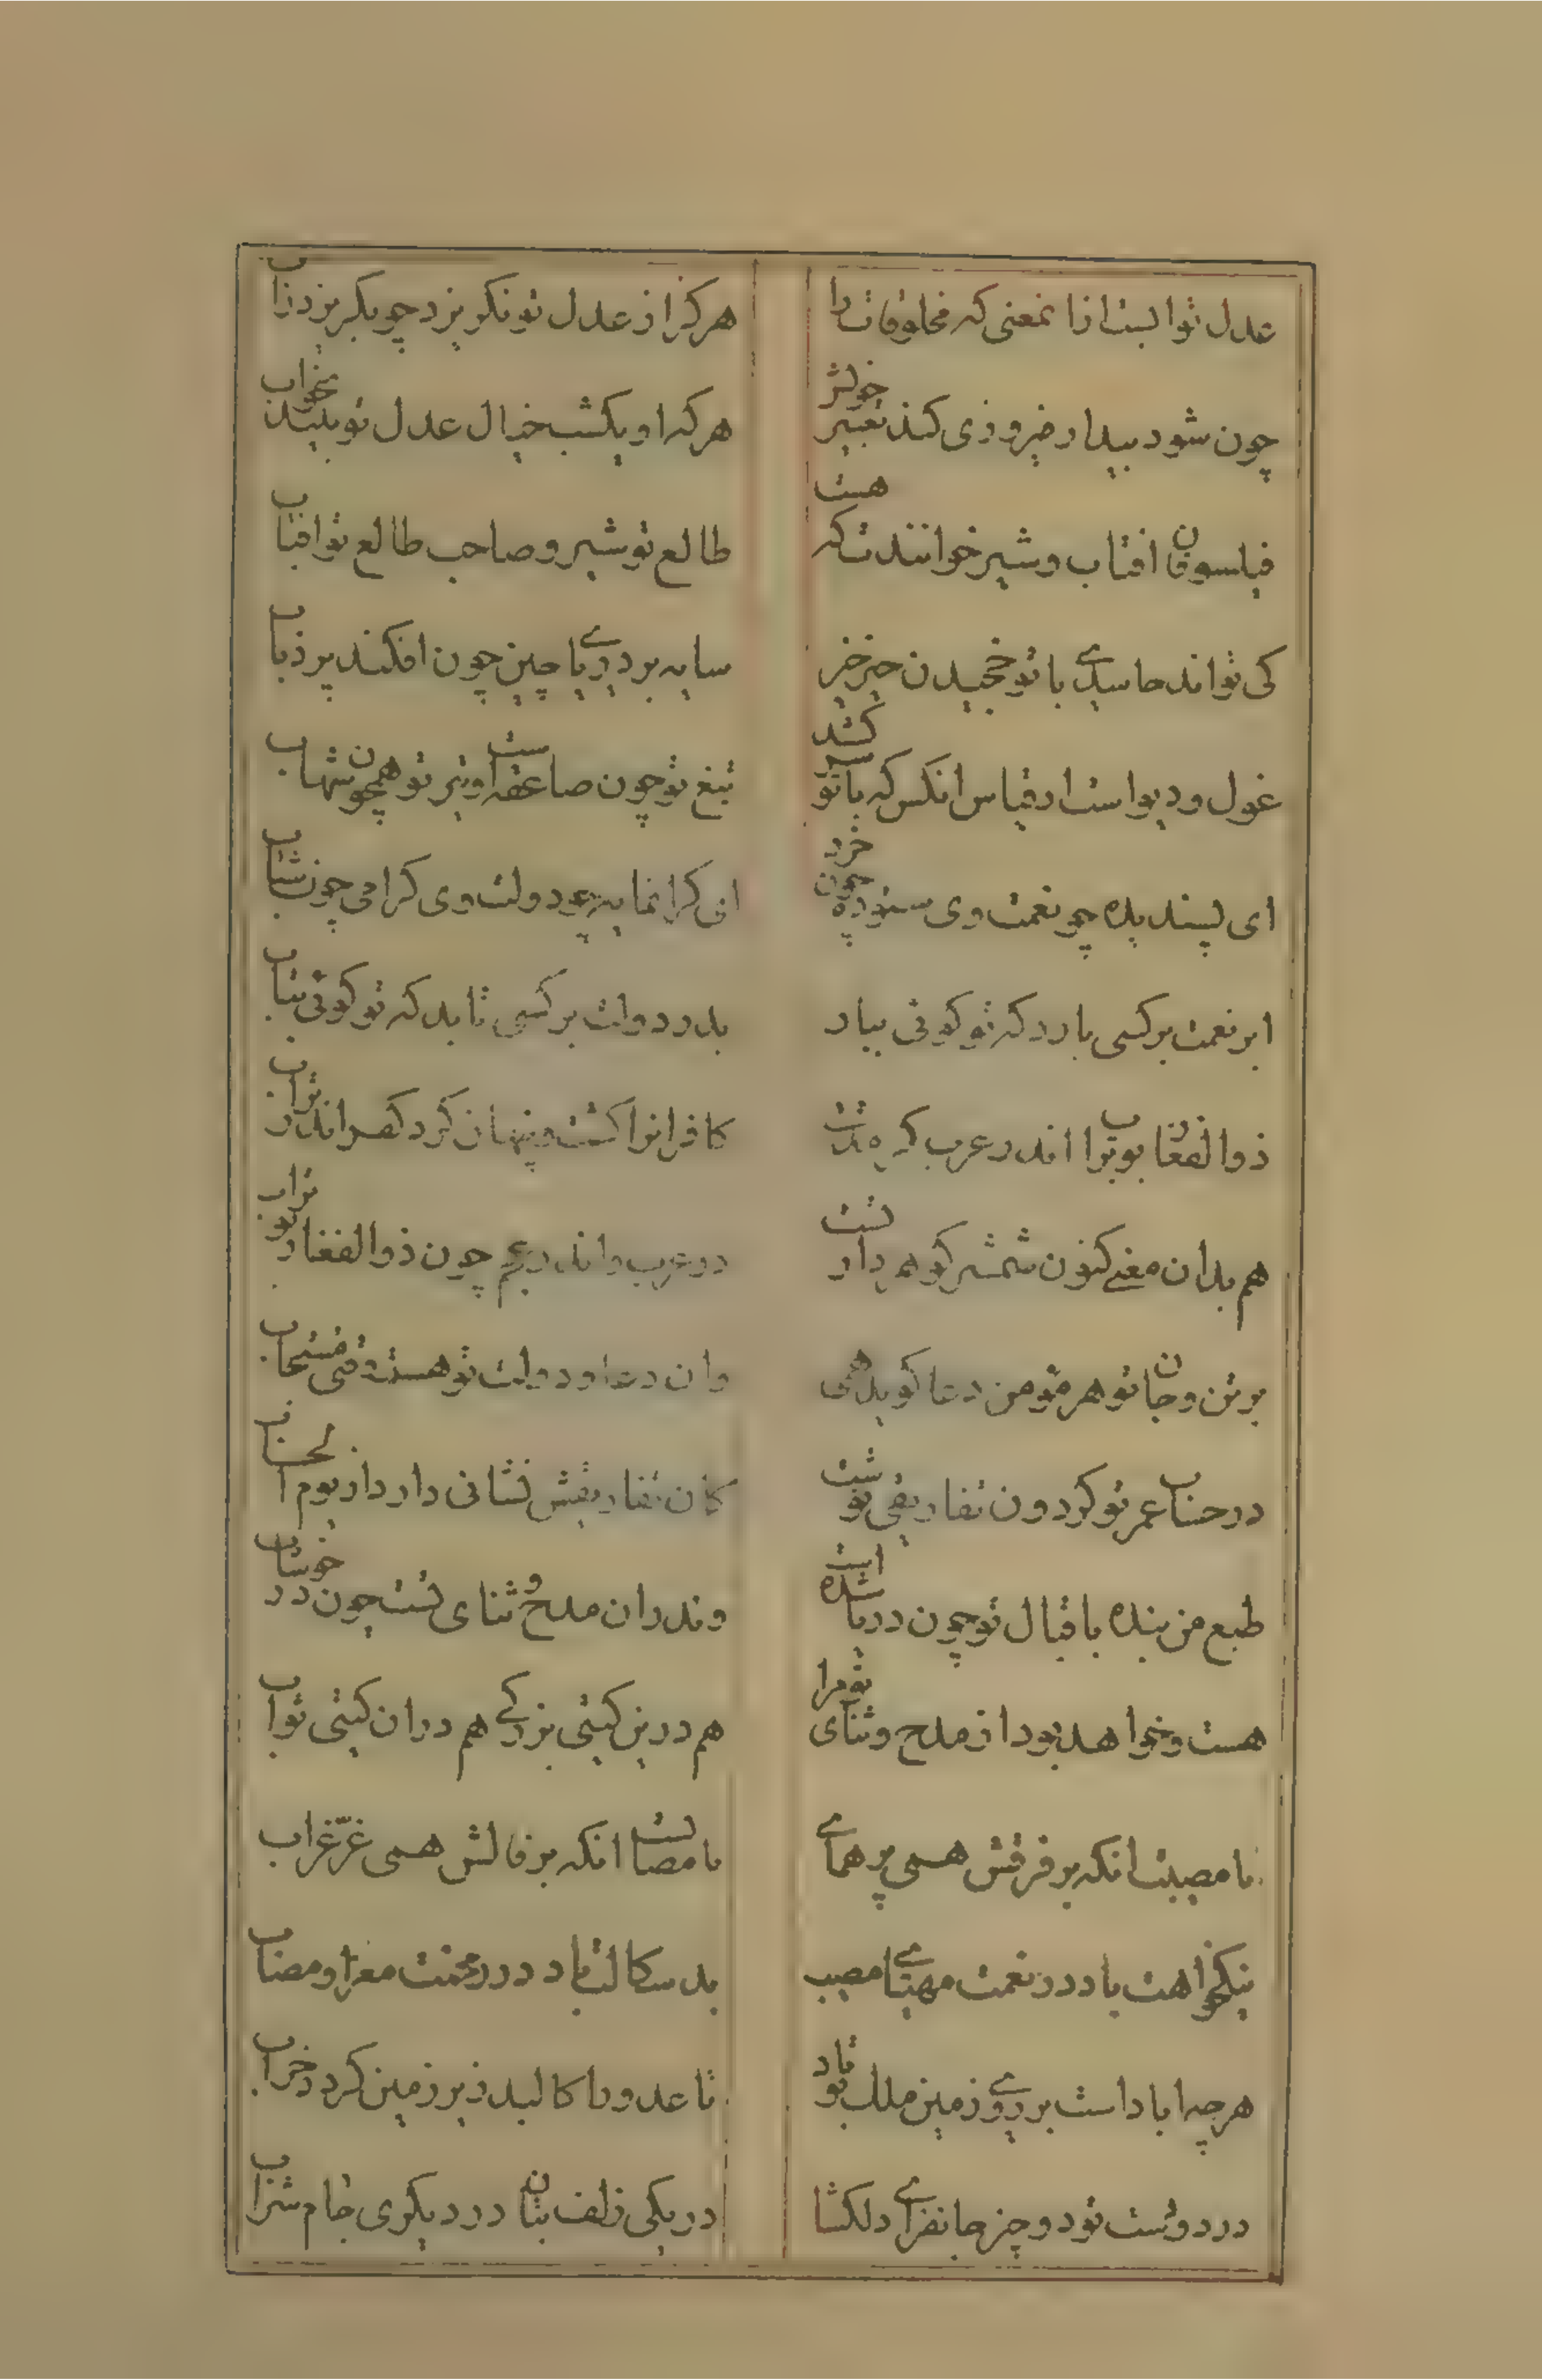 عدل تو آبست ازان معنی که مخلوقات را
هر کز از عدل تو نگریزد چو بگریزد ز آب
چون شود بیدار فیروزی کند تعبیر خوابش
هر که او یکشب خیال عدل تو بیند بخواب
فیلسوفان افتاب و شیر خوانندت که هست
طالع تو شیر و صاحب طالع تو افتاب
کی تواند حاسدی با تو چخیدن خیر خیر
سایه بر دریای چین چون افکند پر ذباب
غول و دیو است از قیاس انکس که با تو سر کشد
تیغ تو چون صاعقه است و تیر تو همچون شهاب
ای پسندیده چو نعمت وی ستوده چون خرد
ای گرانمایه چو دولت وی گرامی چون شباب
ابر نعمت بر کسی بارد که تو گوئی ببار
بدر دولت بر کسی تابد که تو گوئی بتاب
ذوالفقار بوتراب اندر عرب که شدت
کافرانرا کشت و پنهان کرد کفر اندر تراب
هم بدان معنی کنون شمشیر گوهر دار تست
در عرب و اندر عجم چون ذوالفقار بوتراب
بر تن و جان تو هر مومن دعا گوید همی
وان دعا و دولت تو هست وقتی مستجاب
در حساب عمر تو گردون تفاریقی نوشت
کان تفاریقش نشانی دارد از یوم الحساب
طبع من بنده باقبال تو چون دریا شده است
وندر وان مدح و ثنای تست چون در خوشاب
هست و خواهد بود از مدح و ثنای تو مرا
هم درین گیتی بزرگی هم دران گیتی ثواب
با مصیبت انکه بر فرقش همی پر همای
با مصابست انکه بر فالش همی غرّ غراب
نیکخواهت باد در نعمت مهنای مصیب
بد سگالت باد در محنت معزا و مصاب
هر چه اباد است بر روی زمین ملک تو باد
تا عدو با کالبد زیر زمین گردد خراب
در دو دست تو دو چیز جانفزای دلکشا
در یکی زلف بتان در دیگری جام شراب